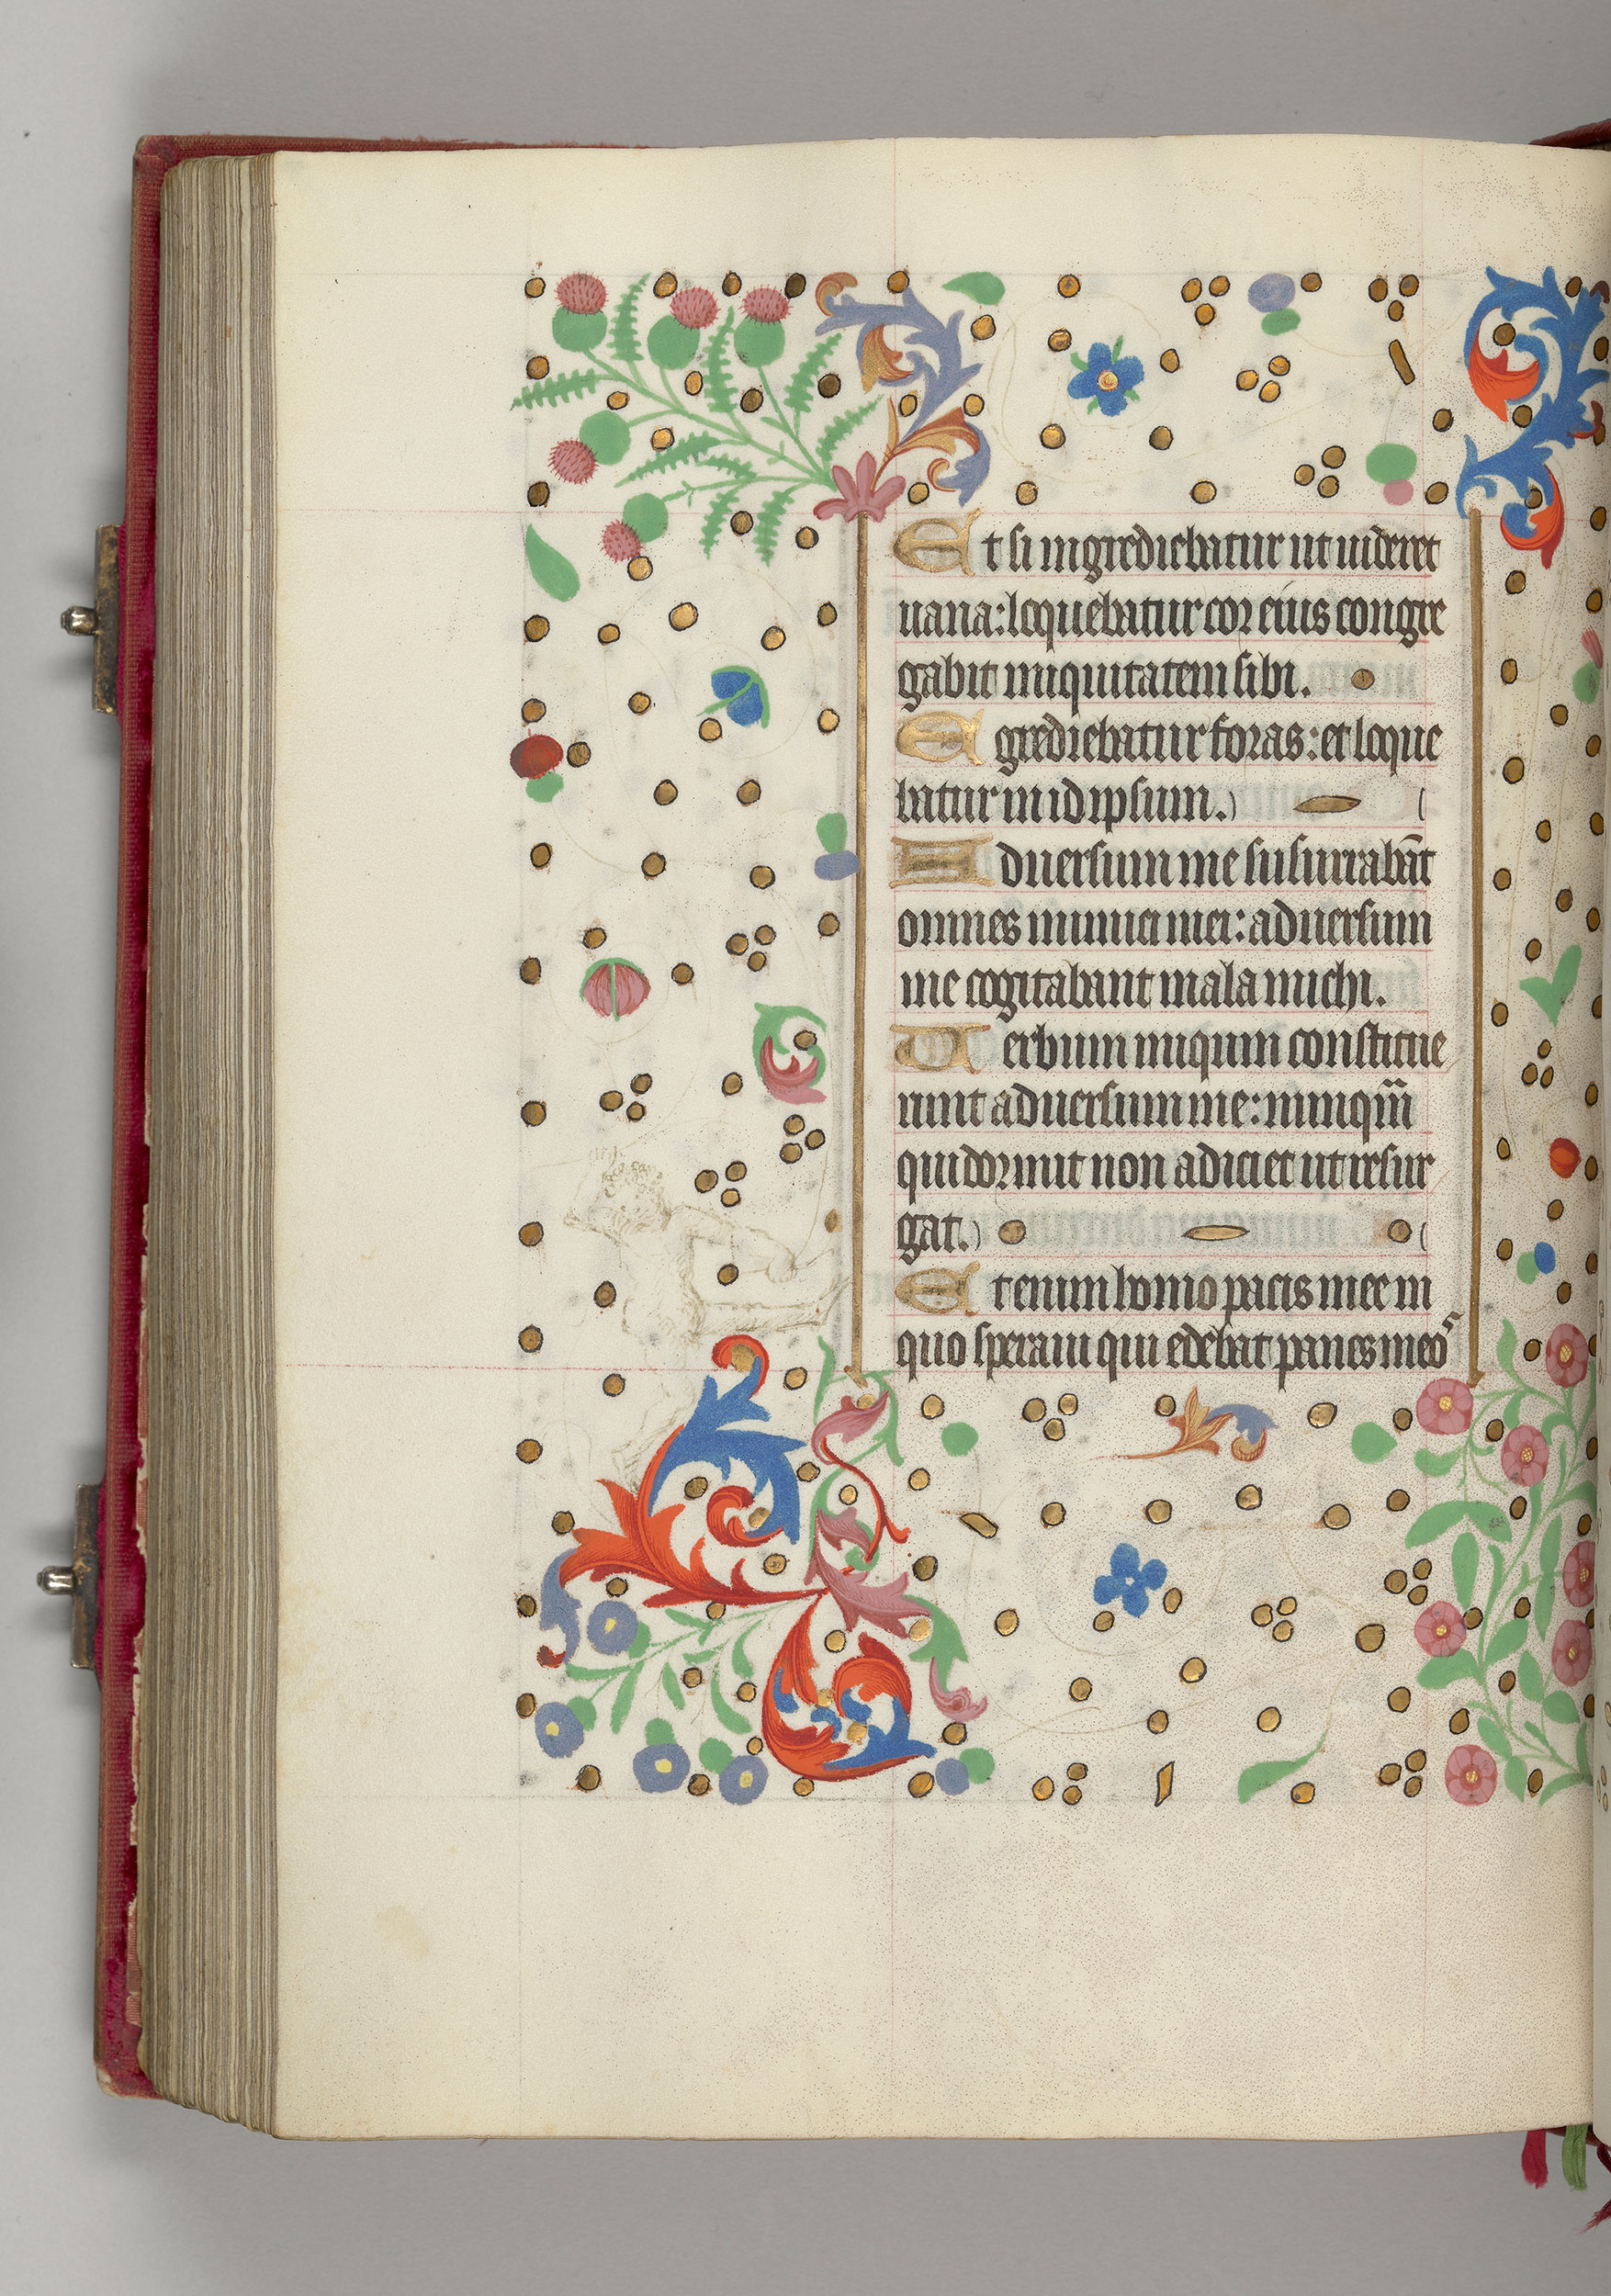 Et si ingrediebatur ut uideret
uana: loquebatur cor eius congre
gabit iniquitatem sibi.
Egrediebatur foras: et loque
batur in id ipsum.
Aduersum me susurrabāt
omnes inimici mei: aduersum
me cogitabant mala michi.
Uerbum iniqum constitue
runt aduersum me: nunqm̄
qui dormit non adiciet ut resur
gat.
Etenim homo pacis mee in
quo speraui qui edebat panes meos